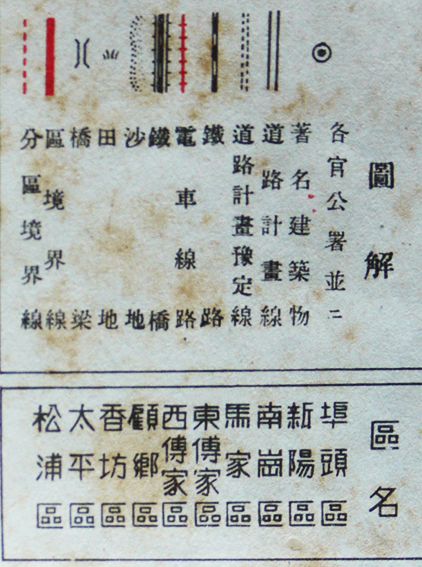 圖解
各官公署並ニ
著名建築物
道路計畫線
道路計畫豫定線
鐵路
電車線路
鐵橋
沙地
田地
橋梁
區境界線
分區境界線
區名
埠頭區
新陽區
南崗區
馬家區
東傅家區
西傅家區
顧鄉區
香坊區
太平區
松浦區